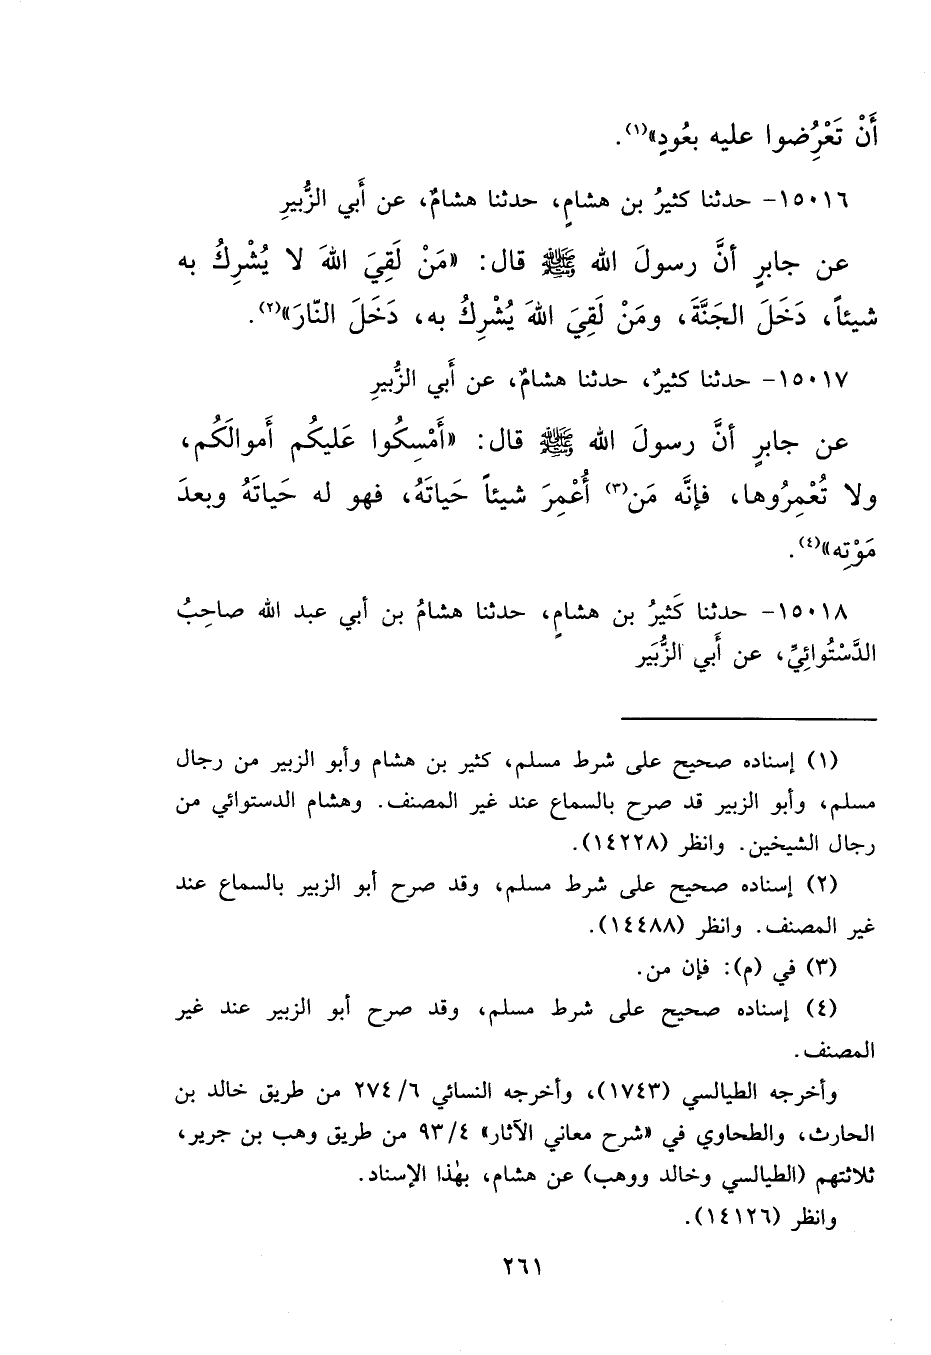 أَنْ تَعْرِضُوا عليه بعُودٍ»(١).
١٥٠١٦- حدثنا كثيرُ بن هشامٍ، حدثنا هشامٌ، عن أَبي الزُّبيرِ
عن جابرٍ أنَّ رسولَ الله ﷺ قال: «مَنْ لَقِيَ اللهَ لا يُشْرِكُ به
شيئاً، دَخَلَ الجَنَّةَ، ومَنْ لَقِيَ اللهَ يُشْرِكُ به، دَخَلَ النّارَ»(٢).
١٥٠١٧- حدثنا كثيرٌ، حدثنا هشامٌ، عن أَبي الزُّبيرِ
عن جابرٍ أنَّ رسولَ الله ﷺ قال: «أَمْسِكُوا عَليكُم أَموالَكُم،
ولا تُعْمِرُوها، فإنَّه مَن(٣) أُعْمِرَ شيئاً حَياتَهُ، فهو له حَياتَهُ وبعدَ
مَوْتِه»(٤).
١٥٠١٨- حدثنا كَثيرُ بن هشامٍ، حدثنا هشامُ بن أبي عبد الله صاحِبُ
الدَّسْتُوائِيِّ، عن أَبي الزُّبَير
(١) إسناده صحيح على شرط مسلم، كثير بن هشام وأبو الزبير من رجال
مسلم، وأبو الزبير قد صرح بالسماع عند غير المصنف. وهشام الدستوائي من
رجال الشيخين. وانظر (١٤٢٢٨).
(٢) إسناده صحيح على شرط مسلم، وقد صرح أبو الزبير بالسماع عند
غير المصنف. وانظر (١٤٤٨٨).
(٣) في (م): فإن من.
(٤) إسناده صحيح على شرط مسلم، وقد صرح أبو الزبير عند غير
المصنف.
وأخرجه الطيالسي (١٧٤٣)، وأخرجه النسائي ٢٧٤/٦ من طريق خالد بن
الحارث، والطحاوي في «شرح معاني الآثار» ٩٣/٤ من طريق وهب بن جرير،
ثلاثتهم (الطيالسي وخالد ووهب) عن هشام، بهٰذا الإسناد.
وانظر (١٤١٢٦).
٢٦١